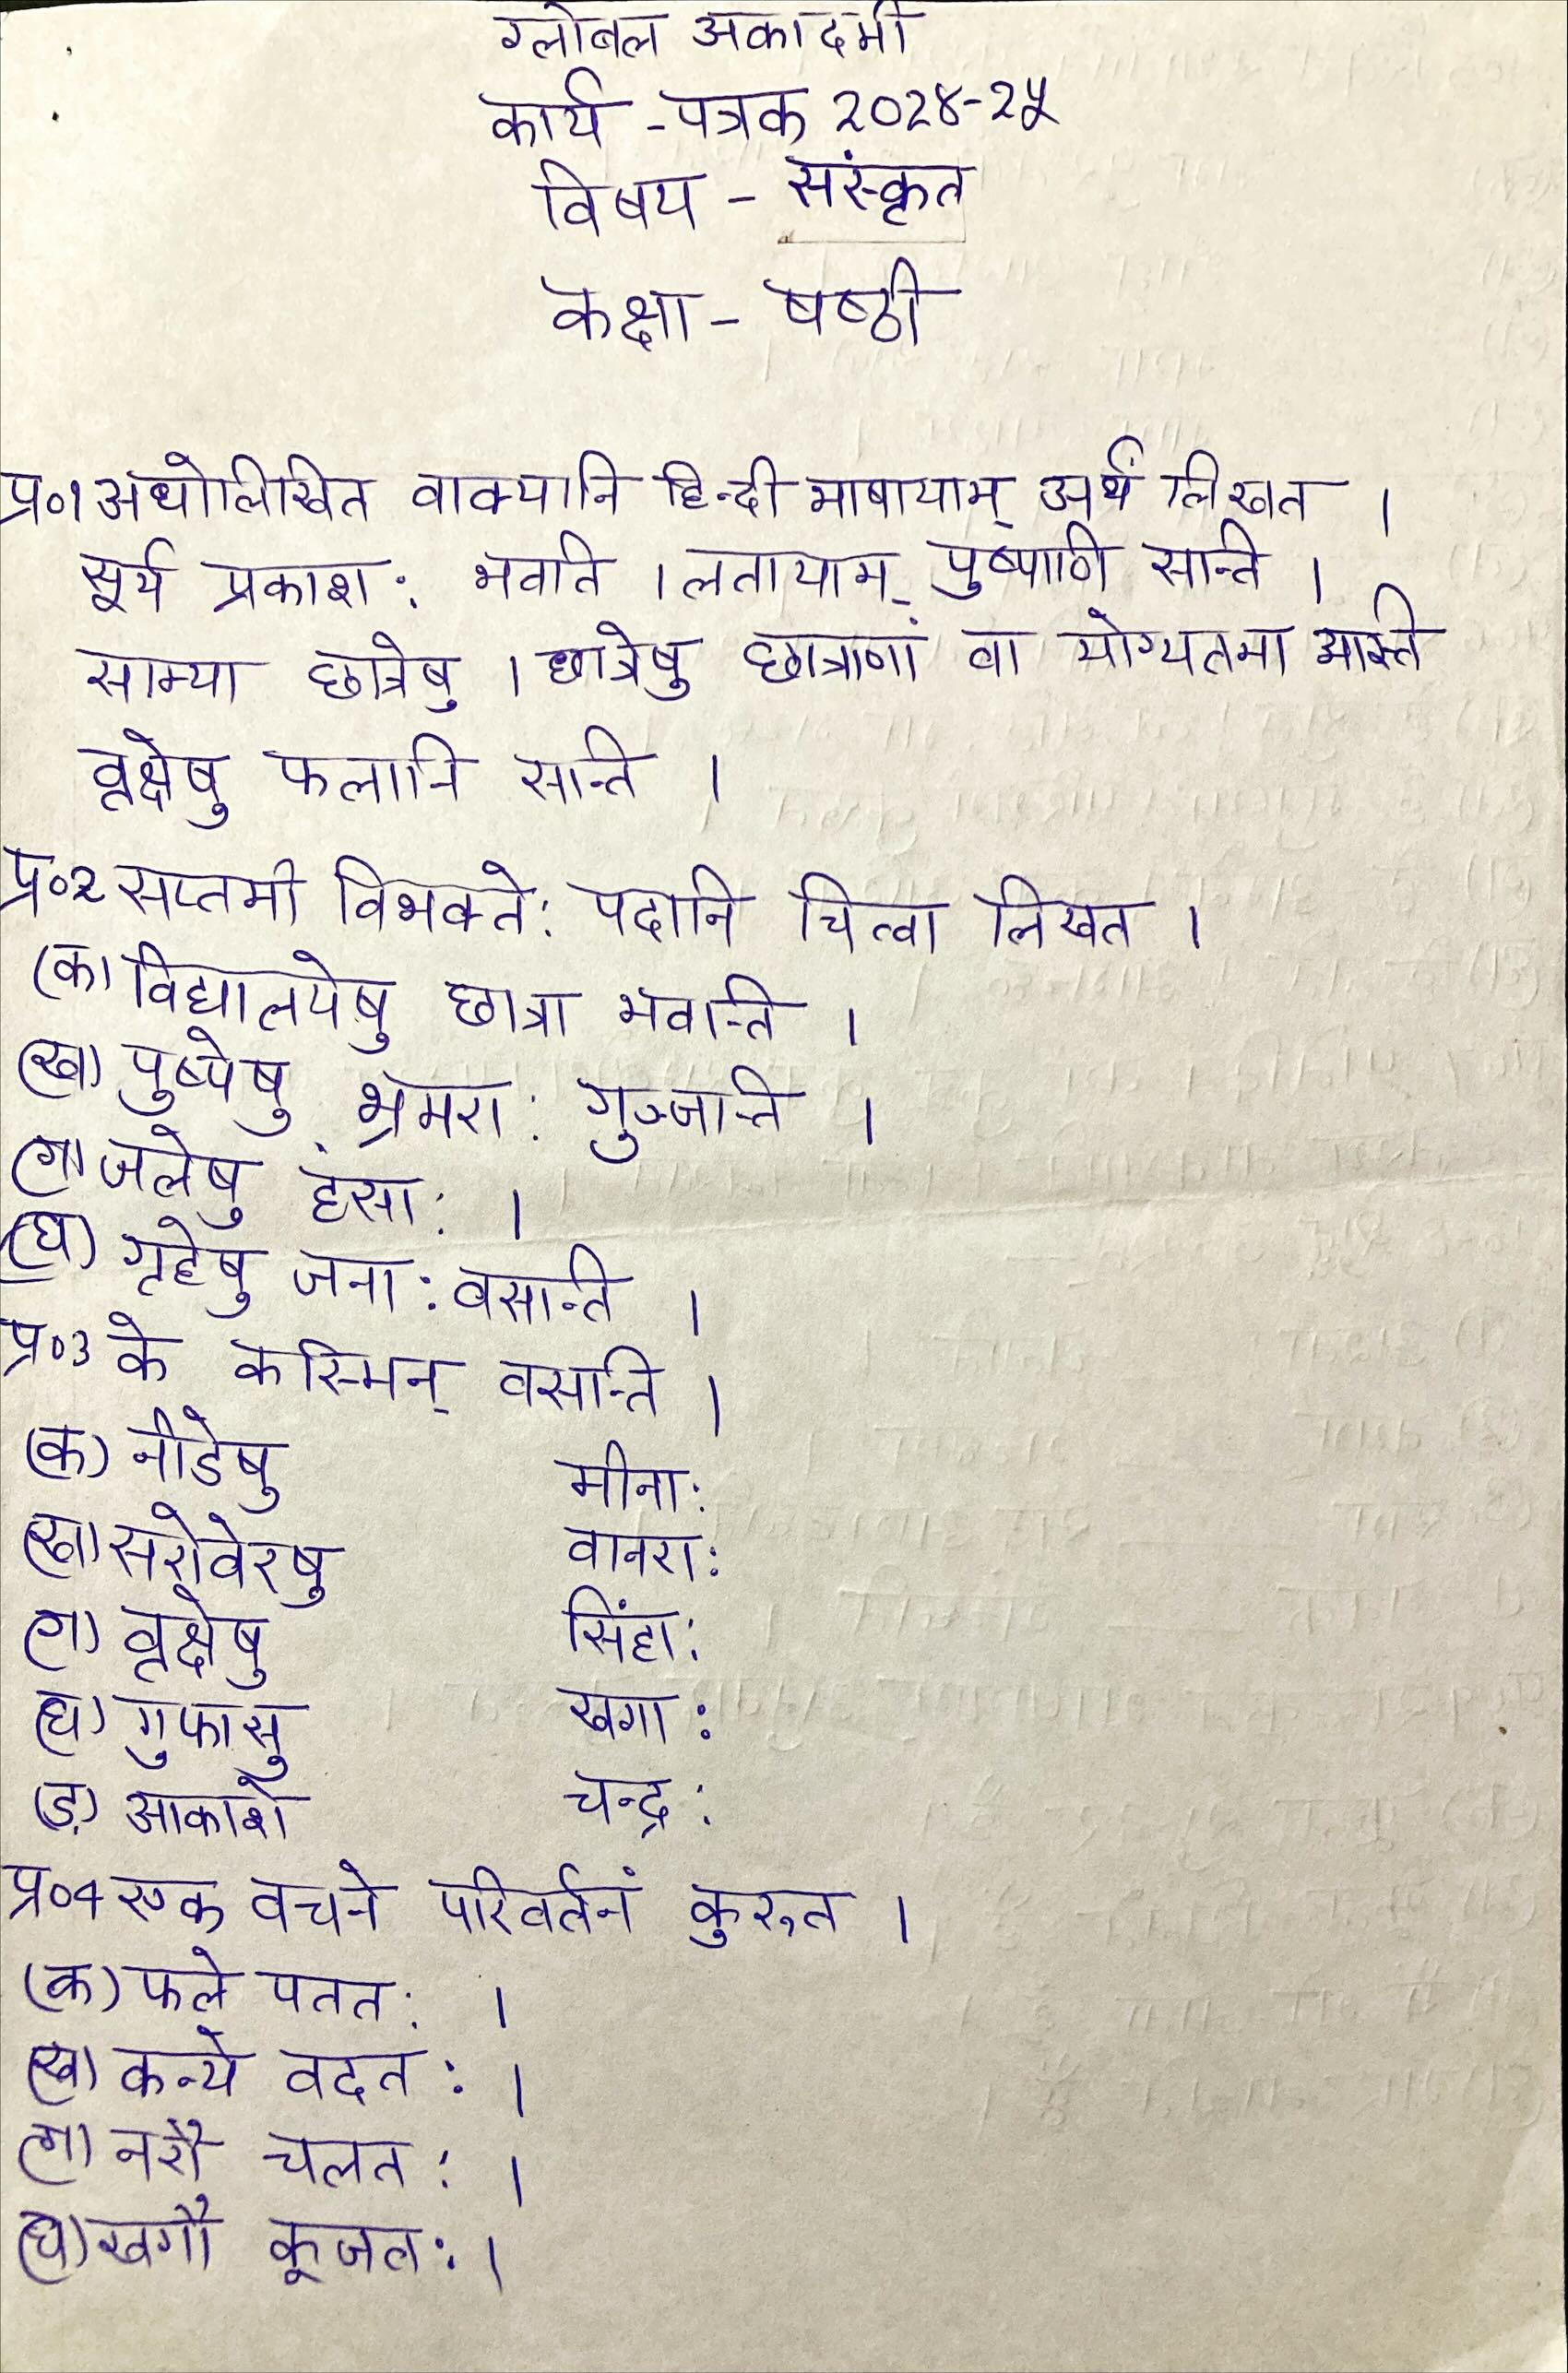 ग्लोबल अकादमी
कार्य - पत्रक २०२४-२५
विषय - संस्कृत
कक्षा - षष्ठी
प्र०1 अधोलिखित वाक्यानि हिन्दी भाषायाम् अर्थं लिखत ।
सूर्य प्रकाश: भवति । लतायाम् पुष्पाणि सन्ति ।
साम्या छात्रेषु । छात्रेषु छात्राणां वा योग्यतमा अस्ति
वृक्षेषु फलानि सन्ति ।
प्र०2 सप्तमी विभक्ते: पदानि चित्वा लिखत ।
(क) विद्यालयेषु छात्रा भवन्ति ।
(ख) पुष्पेषु भ्रमरा: गुञ्जन्ति ।
(ग) जलेषु हंसा: ।
(घ) गृहेषु जना: वसन्ति ।
प्र०3 के कस्मिन् वसन्ति ।
(क) नीडेषु मीना:
(ख) सरोवेरषु वानरा:
(ग) वृक्षेषु सिंहा:
(घ) गुफासु खगा:
(ड़) आकाशे चन्द्र:
प्र०4 एक वचने परिवर्तनं कुरुत ।
(क) फले पतत: ।
(ख) कन्ये वदत: ।
(ग) नरौ चलत: ।
(घ) खगौ कूजत: ।